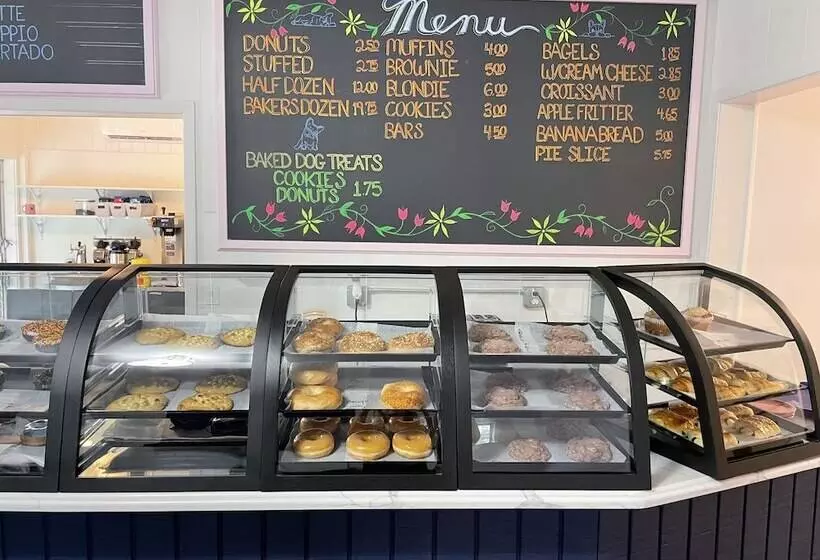 TTE
PPIO
RTADO
Menu
DONUTS 2.50
STUFFED 2.75
HALF DOZEN 12.00
BAKERS DOZEN 19.75
BAKED DOG TREATS
COOKIES
DONUTS 1.75
MUFFINS 4.00
BROWNIE 5.00
BLONDIE 6.00
COOKIES 3.00
BARS 4.50
BAGELS 1.85
W/CREAM CHEESE 2.85
CROISSANT 3.00
APPLE FRITTER 4.65
BANANA BREAD 5.00
PIE SLICE 5.75